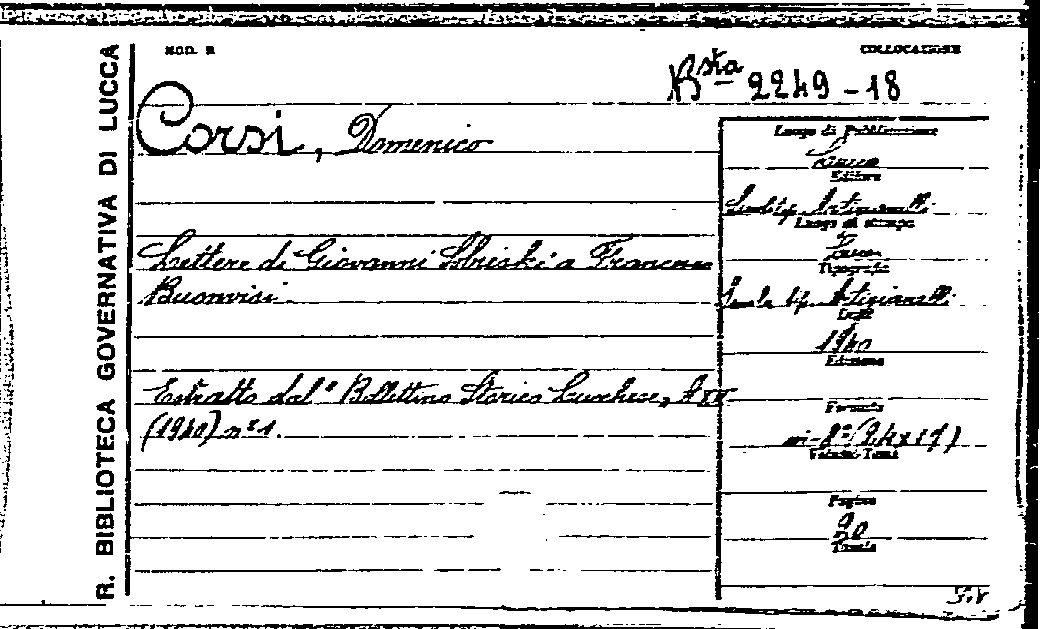 R. BIBLIOTECA GOVERNATIVA DI LUCCA
MOD. B
COLLOCAZIONE
Bsta 2249-18
Corsi, Domenico
Lettere di Giovanni Sobieski a Francesco
Buonvisi.
Estratto dal "Bollettino Storico Lucchese,
(1940) n° 1.
Luogo di Pubblicazione
Lucca
Editore
Scuola tip. Artigianelli
Luogo di stampa
Lucca
Tipografia
Scuola tip. Artigianelli
Data
1940
Edizione
Formato
in-8°
Volumi-Tomi
Pagine
20
Tavole